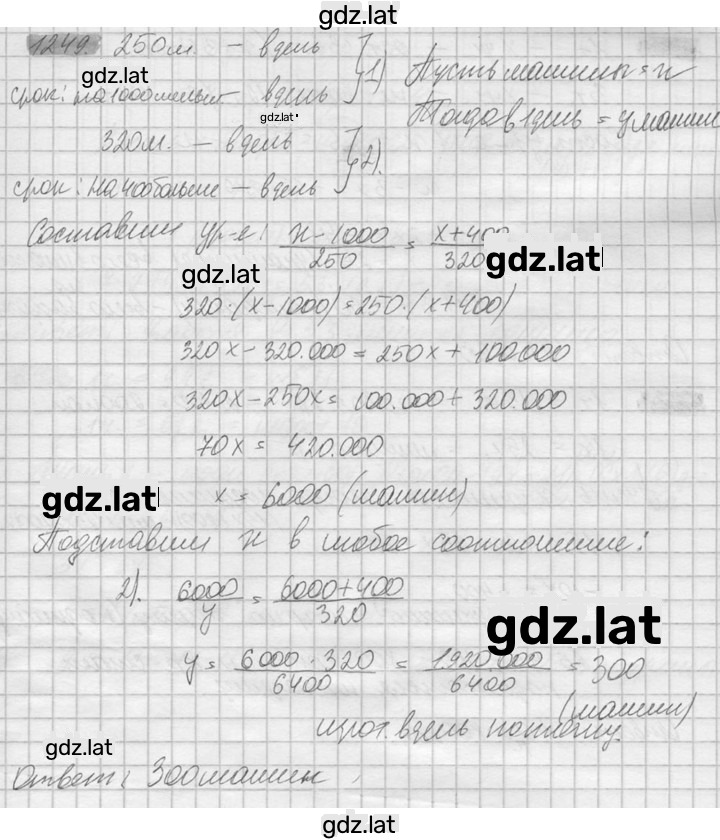 gdz.lat
1249. 250м. – в день } 1) Пусть машины = x
gdz.lat
срок: на 1000 меньше в день
Тогда в 1 день = y машин
gdz.lat
320м. – в день } 2).
срок: на 400 больше – в день
Составим ур-е: x – 1000 / 250 = x + 400 / 320
gdz.lat
gdz.lat
320·(x – 1000) = 250·(x + 400)
320x – 320.000 = 250x + 100000
320x – 250x = 100.000 + 320.000
70x = 420.000
gdz.lat
x = 6000 (машин)
Подставим x в любое соотношение:
2). 6000 / y = 6000 + 400 / 320
gdz.lat
y = 6000 · 320 / 6400 = 1920.000 / 6400 = 300
(машин)
изгот. в день по плану.
gdz.lat
Ответ: 300 машин
gdz.lat